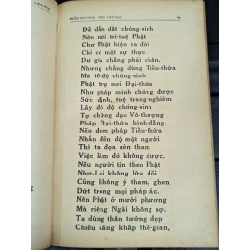 Để dẫn dắt chúng-sinh
Nên nói trí-tuệ Phật
Chư Phật hiện ra đời
Chỉ có một sự thực
Dư gia chẳng phải chân.
Nhưng chẳng dùng Tiểu-thừa
Mà tế-độ chúng-sinh
Phật trụ nơi Đại-thừa
Như pháp mình chứng được
Sức định, tuệ trang-nghiêm
Lấy đó độ chúng-sinh
Tự chứng đạo Vô-thượng
Pháp Đại-thừa bình-đẳng.
Nếu đem pháp Tiểu-thừa
Nhẫn đến độ một người
Thì ta đọa sẻn tham
Việc làm đó không được.
Nếu người tin theo Phật
Như-Lai không lừa dối
Cũng không ý tham, ghen
Dứt trong mọi pháp ác.
Nên Phật ở mười phương
Mà riêng Ngài không sợ.
Ta dùng thân tướng đẹp
Chiếu sáng khắp thế-gian,